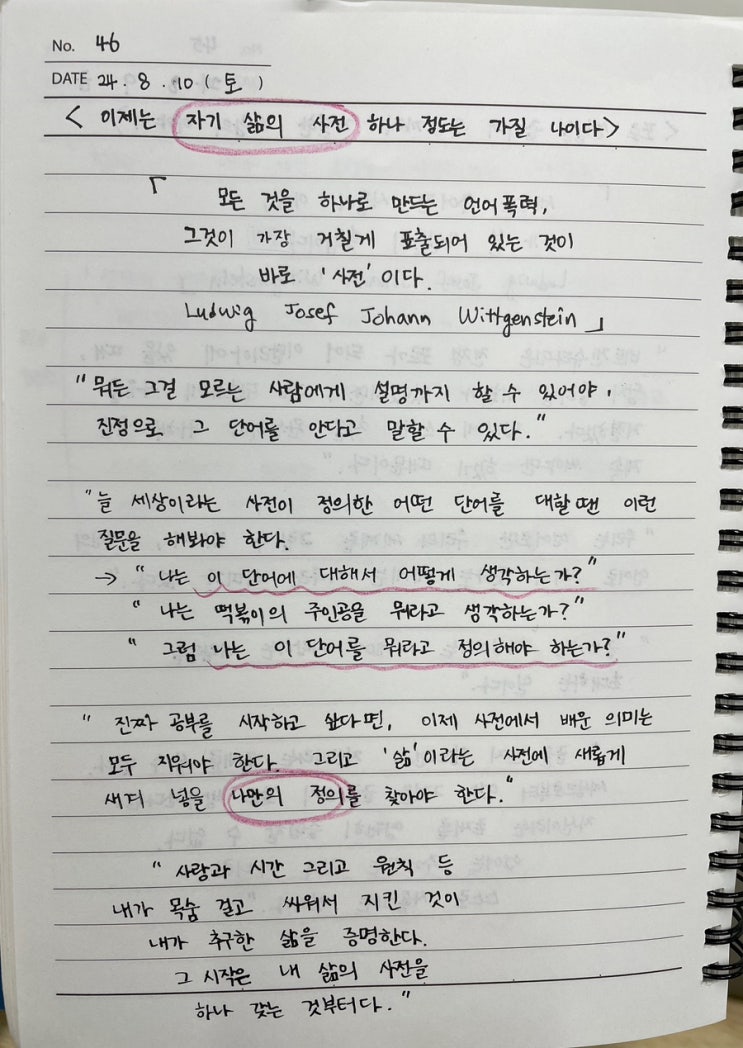 No. 46
DATE 24. 8. 10 (토)
< 이제는 자기 삶의 사전 하나 정도는 가질 나이다>
「 모든 것을 하나로 만드는 언어폭력,
그것이 가장 거칠게 표출되어 있는 것이
바로 '사전'이다.
Ludwig Josef Johann Wittgenstein 」
"뭐든 그걸 모르는 사람에게 설명까지 할 수 있어야,
진정으로 그 단어를 안다고 말할 수 있다."
"늘 세상이라는 사전이 정의한 어떤 단어를 대할 땐 이런
질문을 해봐야 한다.
→ "나는 이 단어에 대해서 어떻게 생각하는가?"
"나는 떡볶이의 주인공을 뭐라고 생각하는가?"
"그럼 나는 이 단어를 뭐라고 정의해야 하는가?"
"진짜 공부를 시작하고 싶다면, 이제 사전에서 배운 의미는
모두 지워야 한다. 그리고 '삶'이라는 사전에 새롭게
새겨 넣을 나만의 정의를 찾아야 한다."
"사랑과 시간 그리고 원칙 등
내가 목숨 걸고 싸워서 지킨 것이
내가 추구한 삶을 증명한다.
그 시작은 내 삶의 사전을
하나 갖는 것부터다."